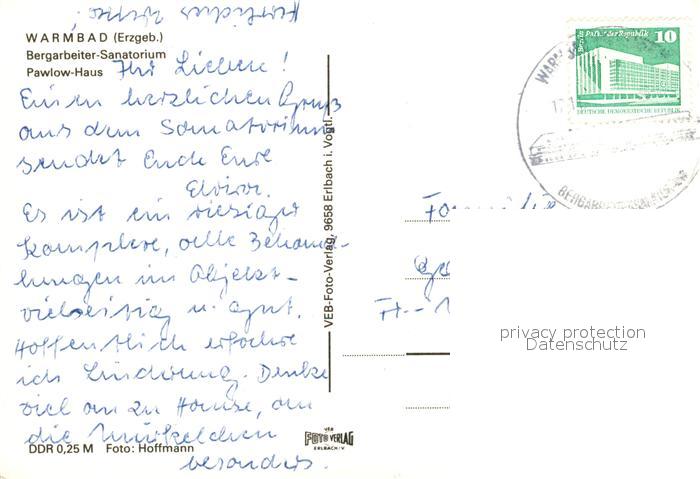 WARMBAD (Erzgeb.)
Bergarbeiter-Sanatorium
Pawlow-Haus
Ihr Lieben!
Einen herzlichen Gruß
aus dem Sanatorium
sendet Euch Eure
Elvira.
Es ist ein riesiger
Komplex, alle Behand-
lungen im Objekt -
vielseitig u. gut.
Hoffentlich erfahre
ich Linderung. Denke
viel an zu Hause, an
die
besonders.
DDR 0,25 M Foto: Hoffmann
VEB-Foto-Verlag, 9658 Erlbach i. Vogtl.
VEB
FOTO VERLAG
ERLBACH/V
10
Berlin Palast der Republik
DEUTSCHE DEMOKRATISCHE REPUBLIK
privacy protection
Datenschutz